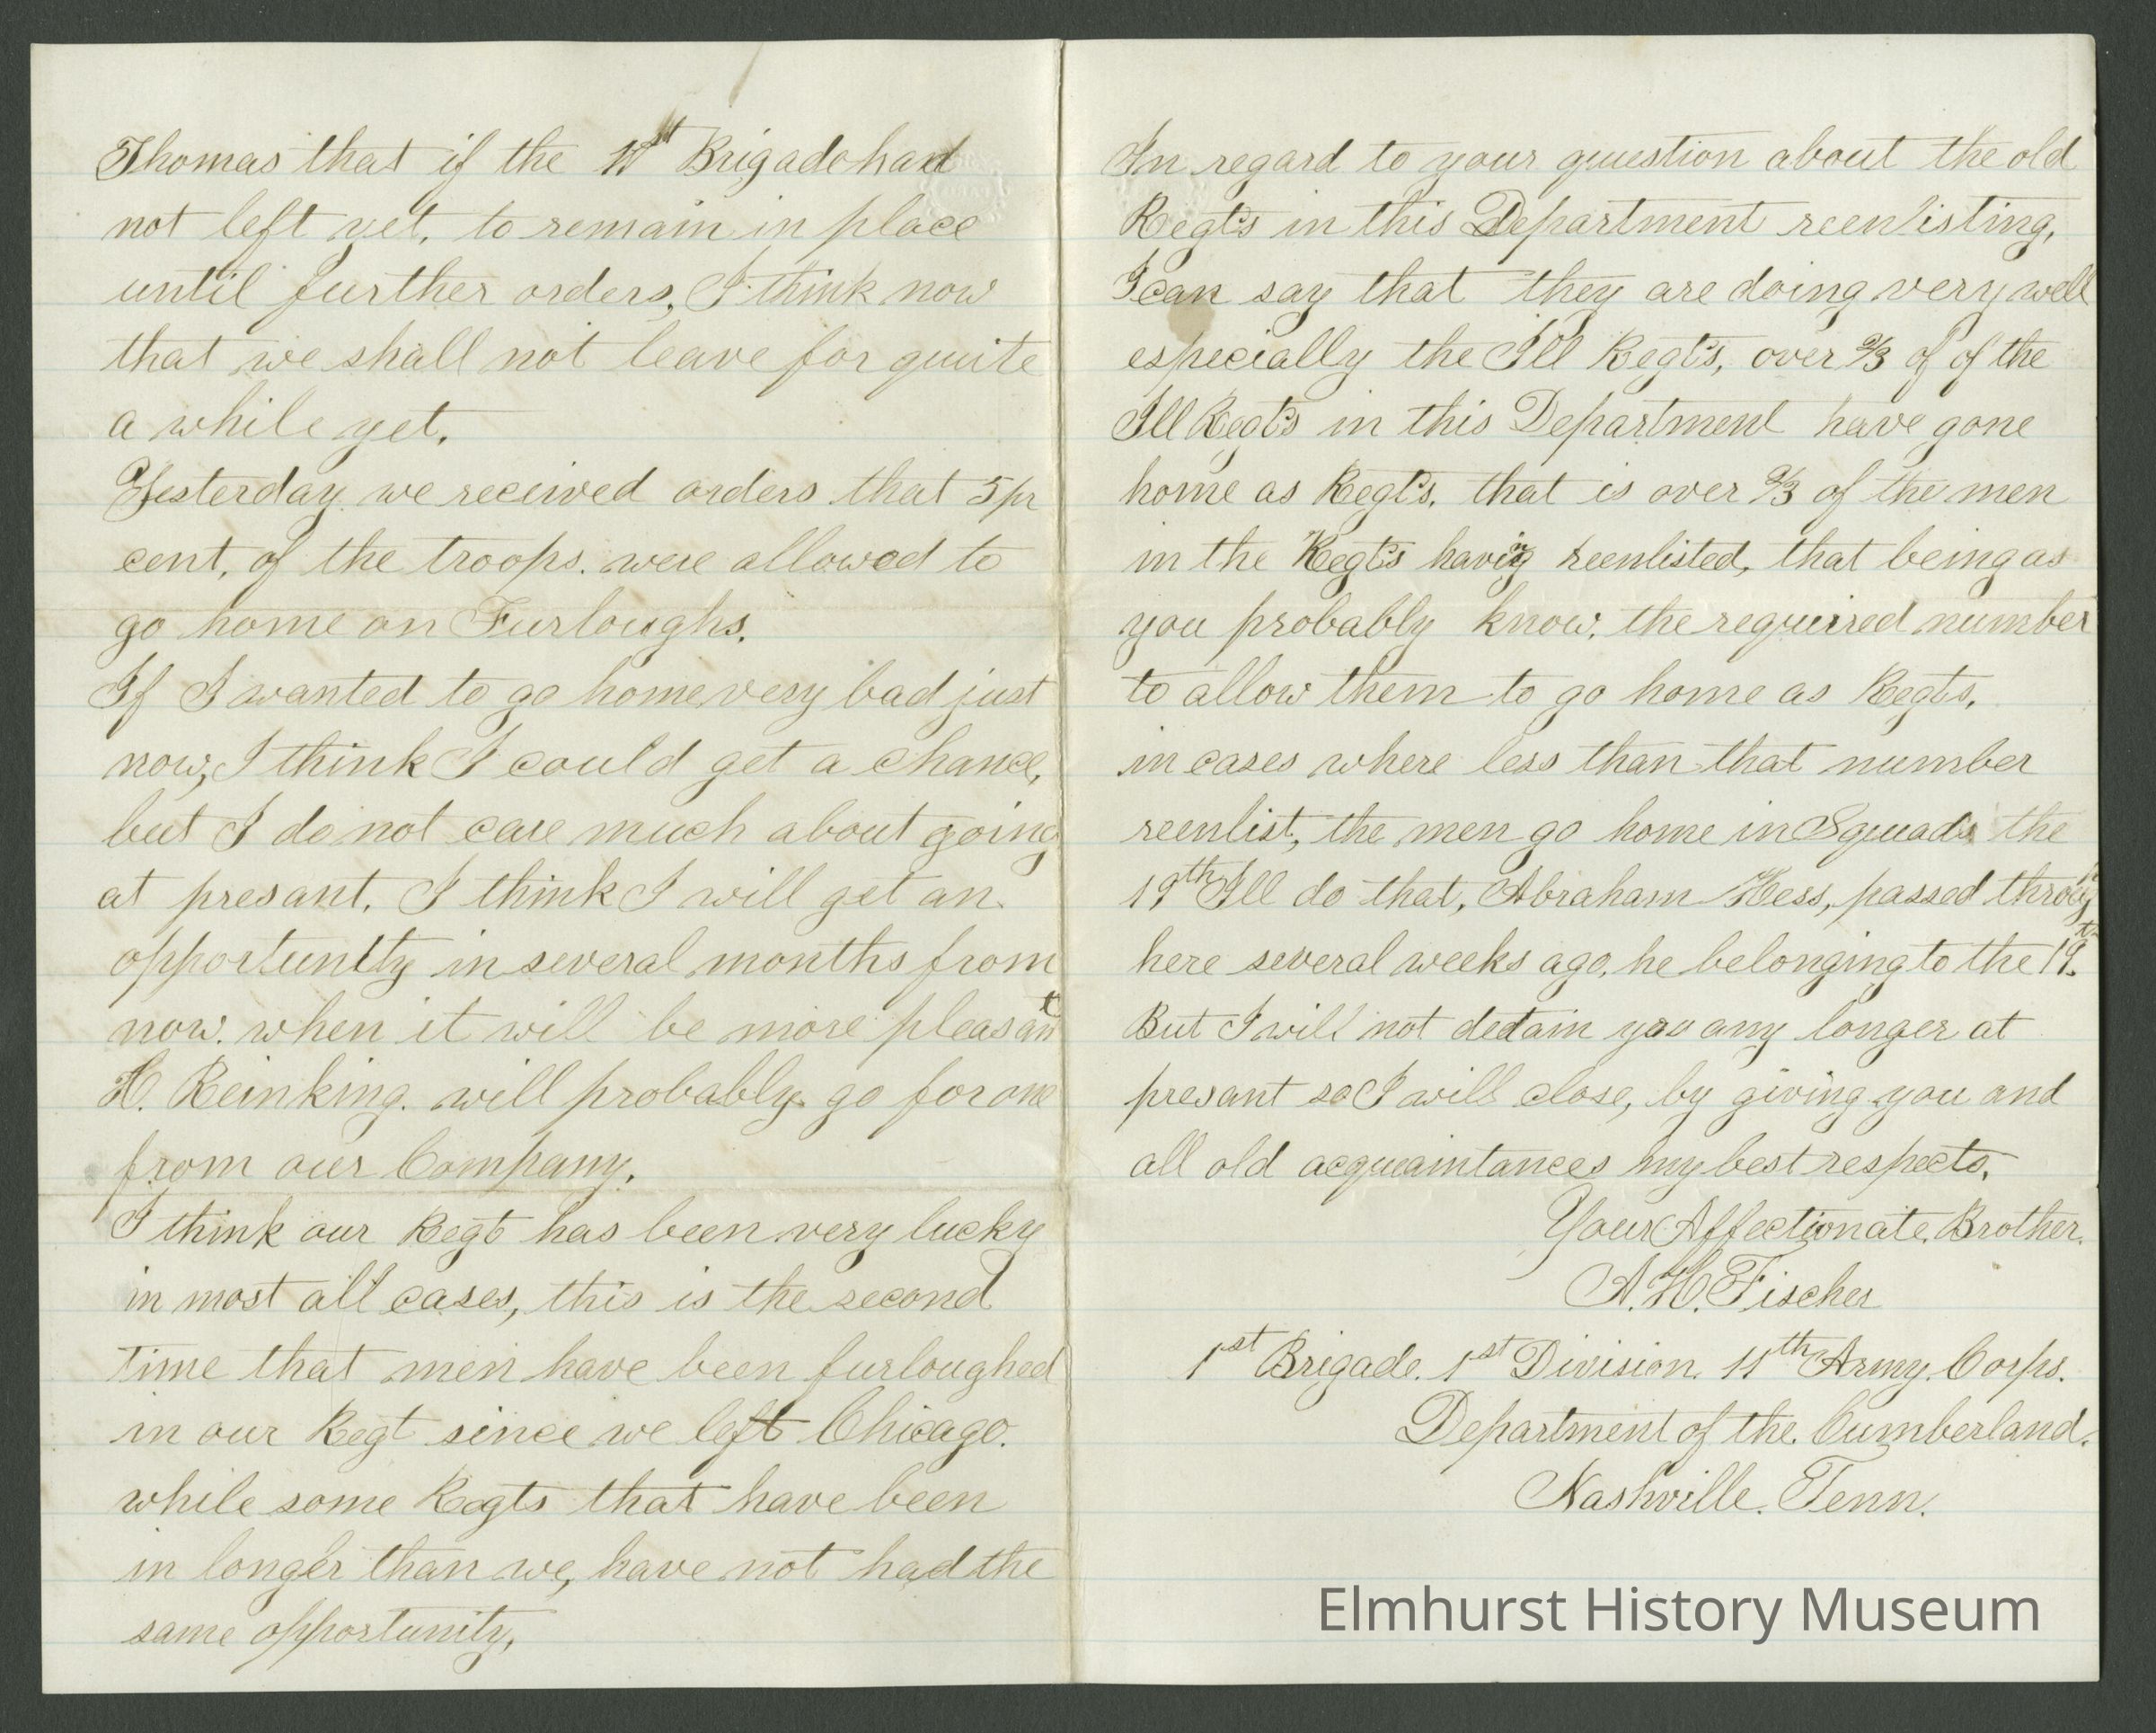 Thomas that if the 1st Brigade had
not left yet, to remain in place
until further orders, I think now
that we shall not leave for quite
a while yet.
Yesterday we received orders that 5 pr
cent, of the troops. were allowed to
go home on Furloughs.
If I wanted to go home very bad just
now, I think I could get a chance,
but I do not care much about going
at presant. I think I will get an
opportunity in several months from
now. when it will be more pleasant
H. Reinking. will probably go for one
from our Company.
I think our Regt has been very lucky
in most all cases, this is the second
time that men have been furloughed
in our Regt since we left Chicago.
while some Regts that have been
in longer than we, have not had the
same opportunity,
In regard to your question about the old
Regts in this Department reenlisting,
I can say that they are doing very well
especially the Ill Regts, over 2/3 of of the
Ill Regts in this Department have gone
home as Regts. that is over 2/3 of the men
in the Regts having reenlisted, that being as
you probably know. the requirred number
to allow them to go home as Regts,
in cases where less than that number
reenlist, the men go home in Squads the
19th Ill do that, Abraham Hess, passed through
here several weeks ago, he belonging to the 19th.
But I will not detain you any longer at
presant so I will close, by giving you and
all old acquaintances my best respects,
Your Affectionate Brother.
A. H. Fischer
1st Brigade. 1st Division. 11th Army. Corps.
Department of the. Cumberland.
Nashville. Tenn.
Elmhurst History Museum